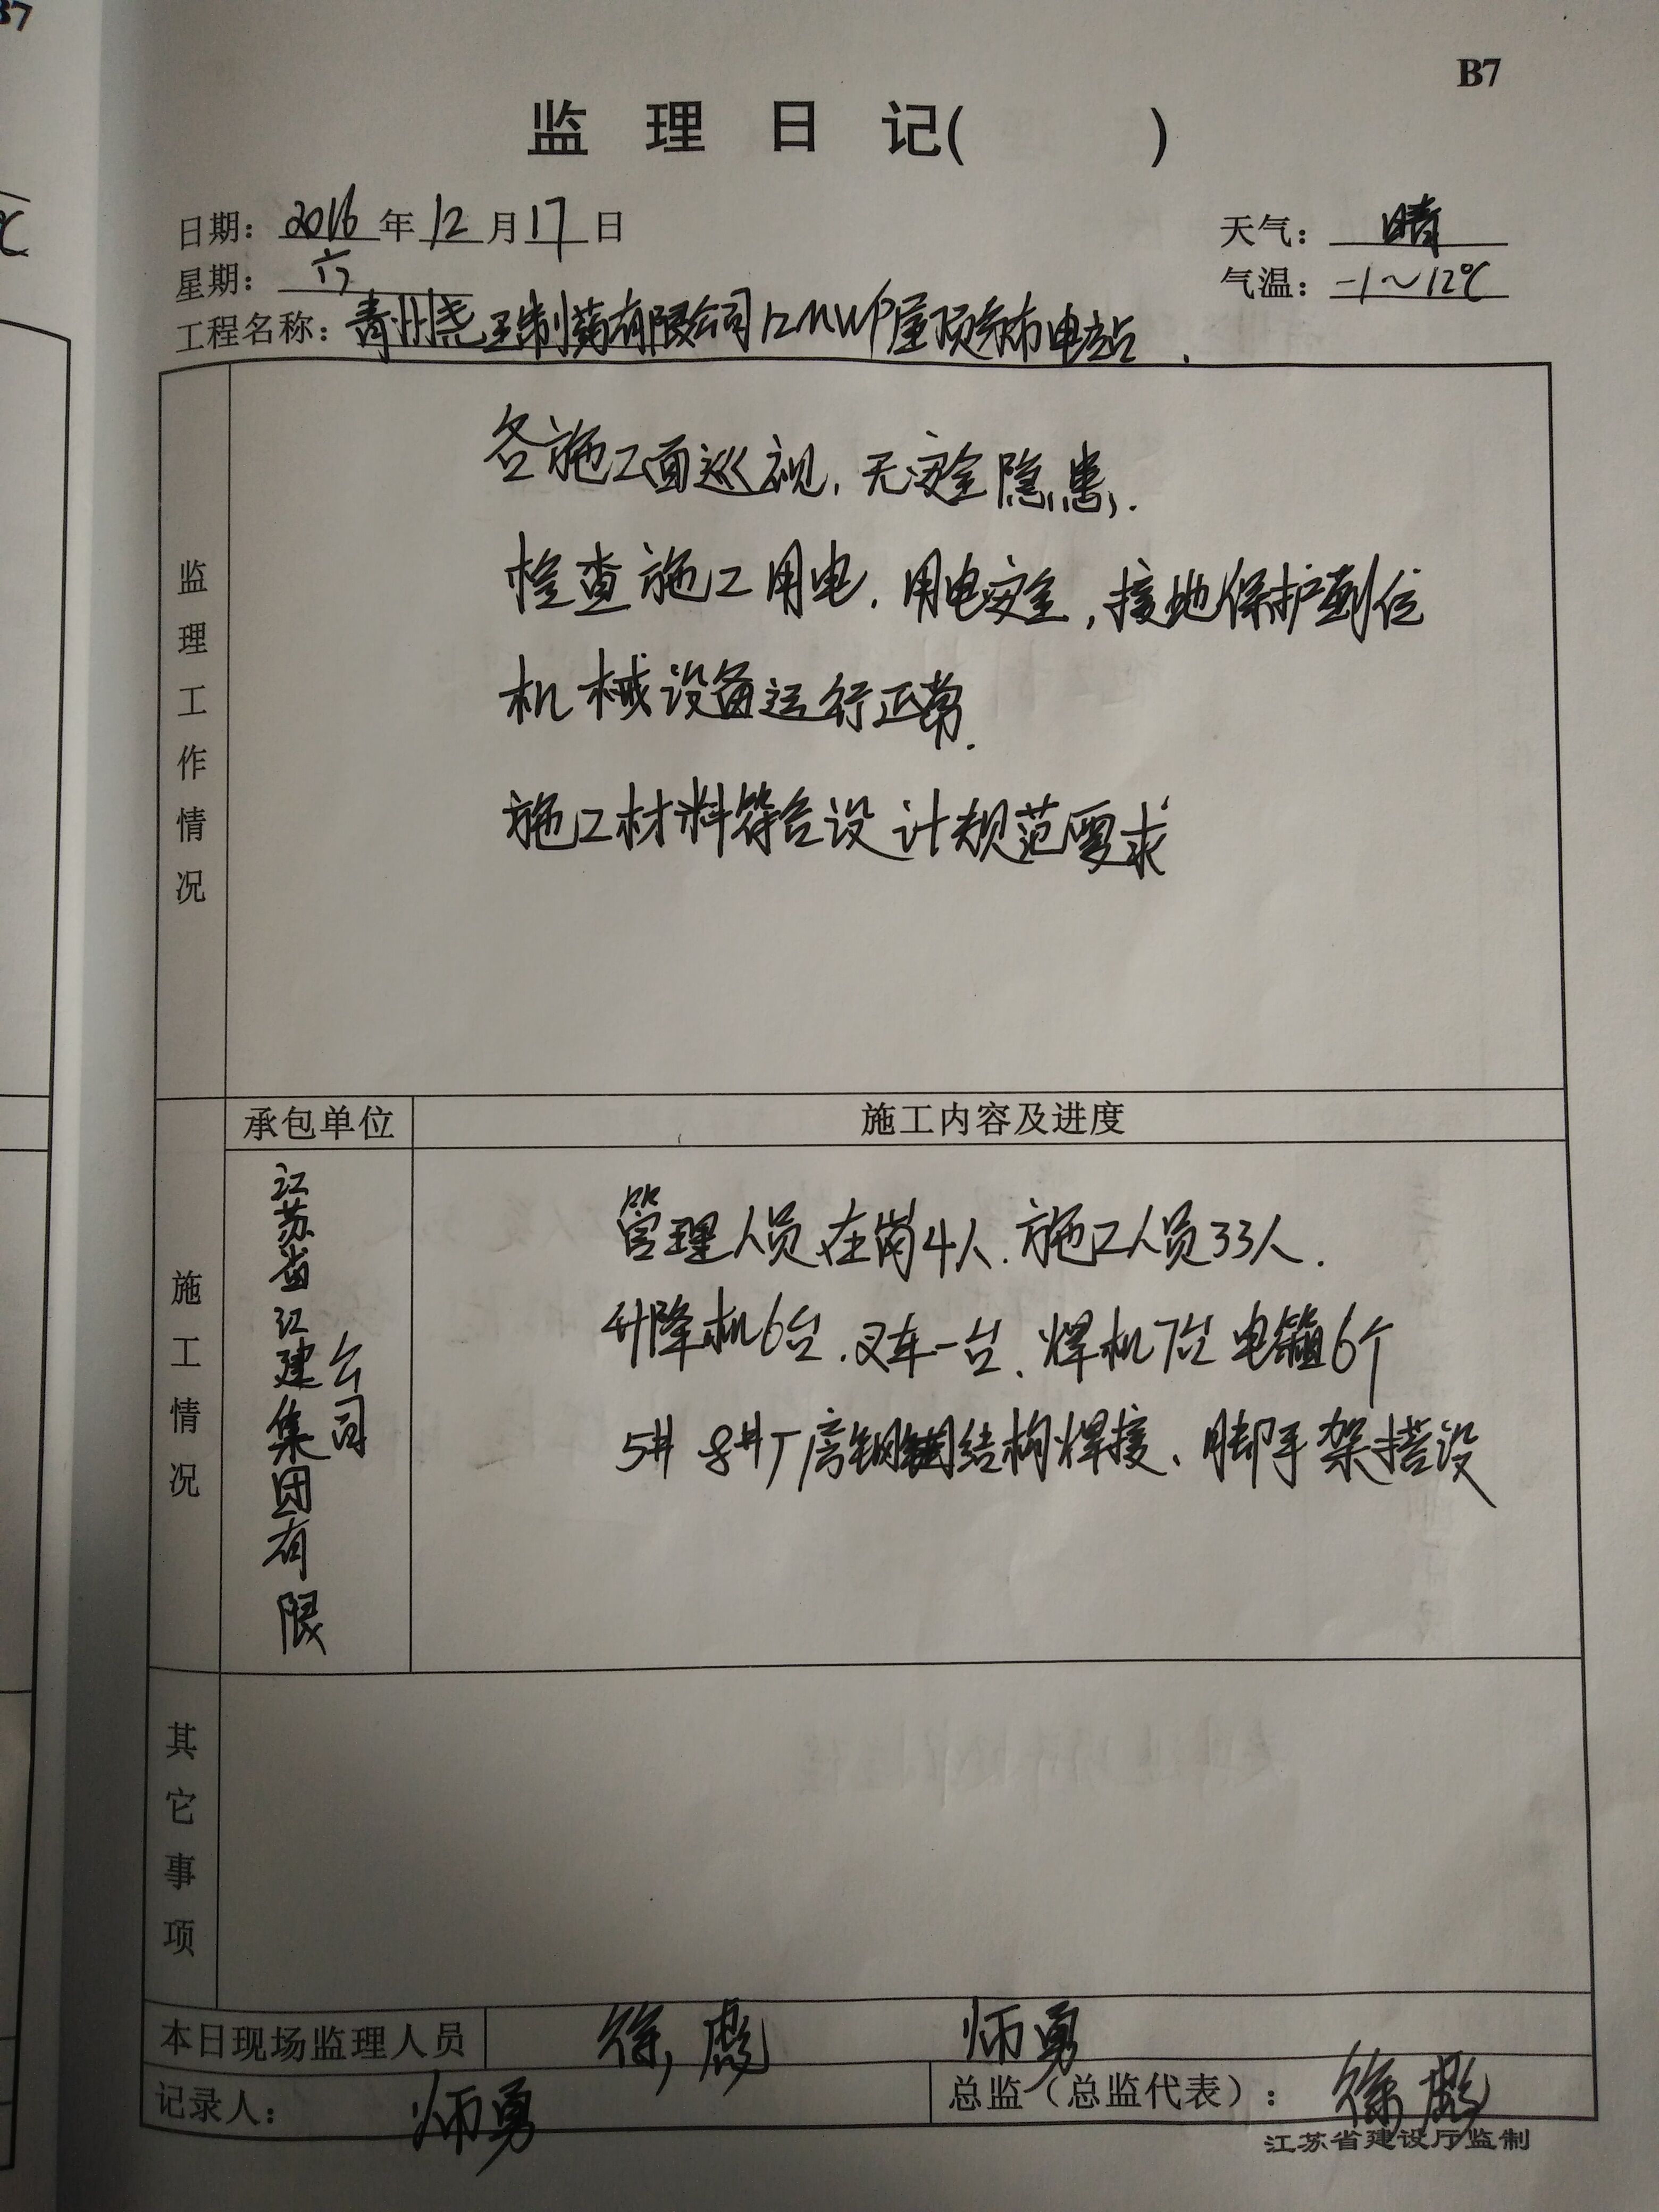 B7
监理日记( )
日期：2016年12月17日 天气：晴
星期：六 气温：-1～12℃
工程名称：青州尧王制药有限公司12MWP屋顶分布电站.
监理工作情况
各施工面巡视，无安全隐患.
检查施工用电.用电安全,接地保护到位
机械设备运行正常.
施工材料符合设计规范要求
施工情况
承包单位 施工内容及进度
江苏省江建集团有限公司
管理人员在岗4人.施工人员33人.
升降机6台.叉车一台、焊机7台 电箱6个
5井 8井厂房钢结构焊接、脚手架搭设
其它事项
本日现场监理人员 徐彪 师勇
记录人：师勇 总监（总监代表）：徐彪
江苏省建设厅监制